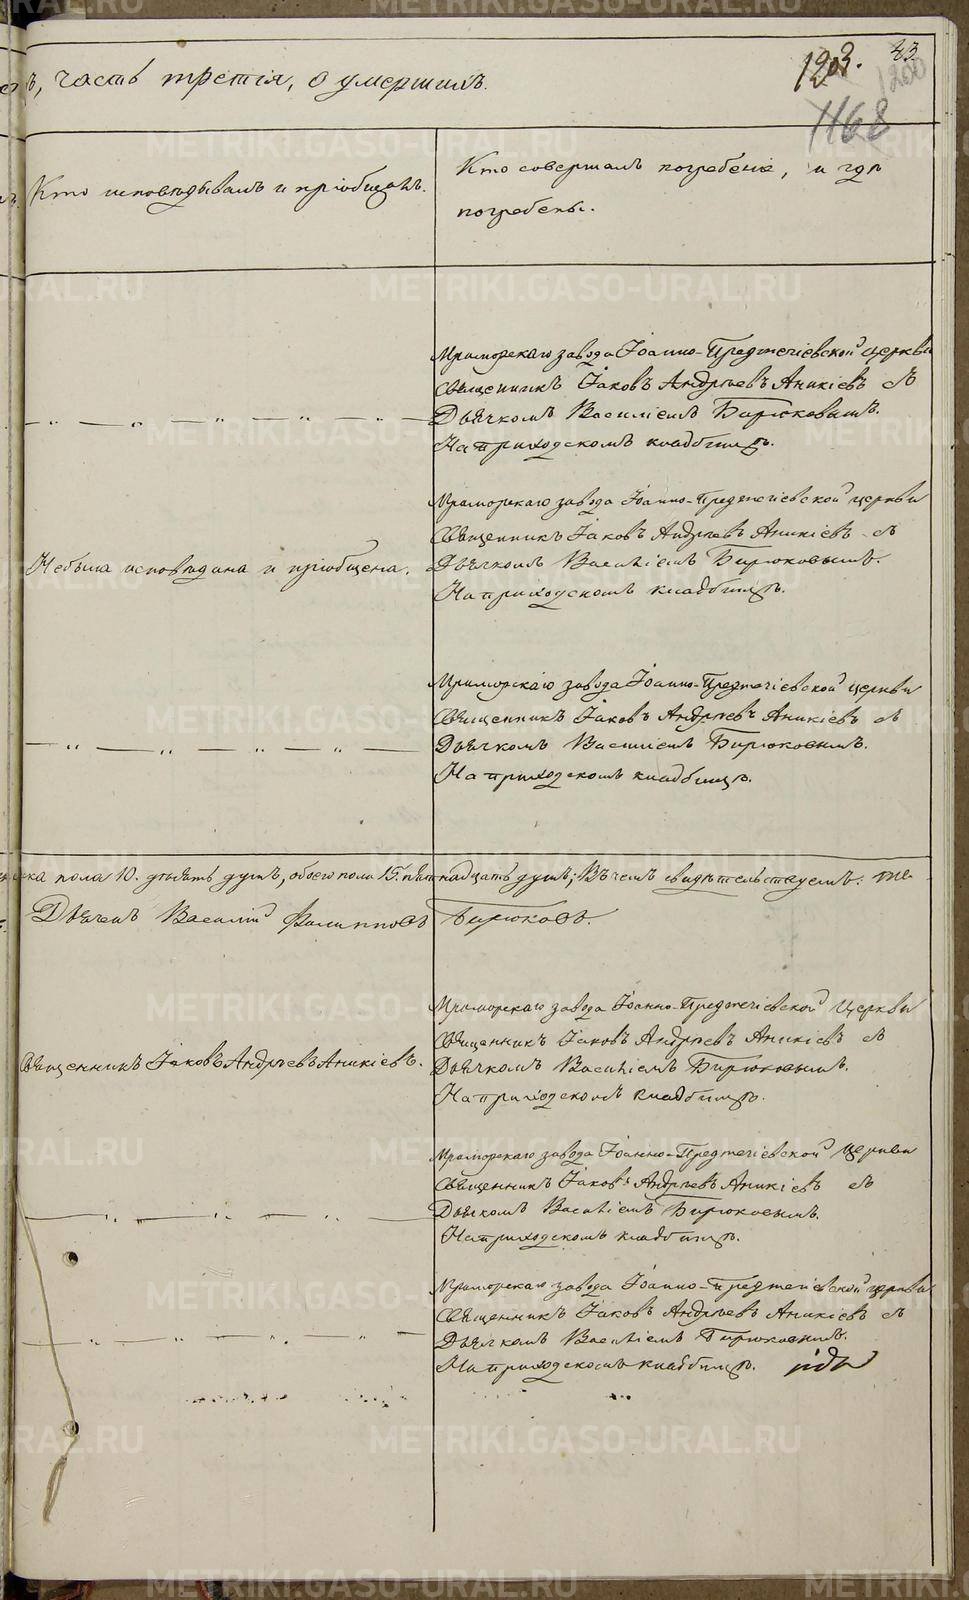 ъ, часть третія, о умершихъ.
1203.
43
1200
1168
Кто исповѣдывалъ и пріобщалъ.
Кто совершалъ погребеніе, и гдѣ
погребены.
Мраморскаго завода Іоанно-Предтечіевской церкви
Священникъ Іаковъ Андрѣевъ Аникіевъ съ
Дьячкомъ Василіемъ Бирюковымъ.
На приходскомъ кладбищѣ.
Мраморскаго завода Іоанно-Предтечіевской церкви
Священникъ Іаковъ Андрѣевъ Аникіевъ съ
Небыла исповѣдана и пріобщена.
Дьячкомъ Василіемъ Бирюковымъ.
На приходскомъ кладбищѣ.
Мраморскаго завода Іоанно-Предтечіевской церкви
Священникъ Іаковъ Андрѣевъ Аникіевъ съ
Дьячкомъ Василіемъ Бирюковымъ.
На приходскомъ кладбищѣ.
пола 10. десять душъ, обоего пола 15. пятнадцать душъ; Въ чемъ свидѣтельствуемъ:
Дьячекъ Василій Филипповъ Бирюковъ.
Мраморскаго завода Іоанно-Предтечіевской Церкви
Священникъ Іаковъ Андрѣевъ Аникіевъ съ
Священникъ Іаковъ Андрѣевъ Аникіевъ.
Дьячкомъ Василіемъ Бирюковымъ.
На приходскомъ кладбищѣ.
Мраморскаго завода Іоанно-Предтечіевской Церкви
Священникъ Іаковъ Андрѣевъ Аникіевъ съ
Дьячкомъ Василіемъ Бирюковымъ.
На приходскомъ кладбищѣ.
Мраморскаго завода Іоанно-Предтечіевской церкви
Священникъ Іаковъ Андрѣевъ Аникіевъ съ
Дьячкомъ Василіемъ Бирюковымъ.
На приходскомъ кладбищѣ.
METRIKI.GASO-URAL.RU